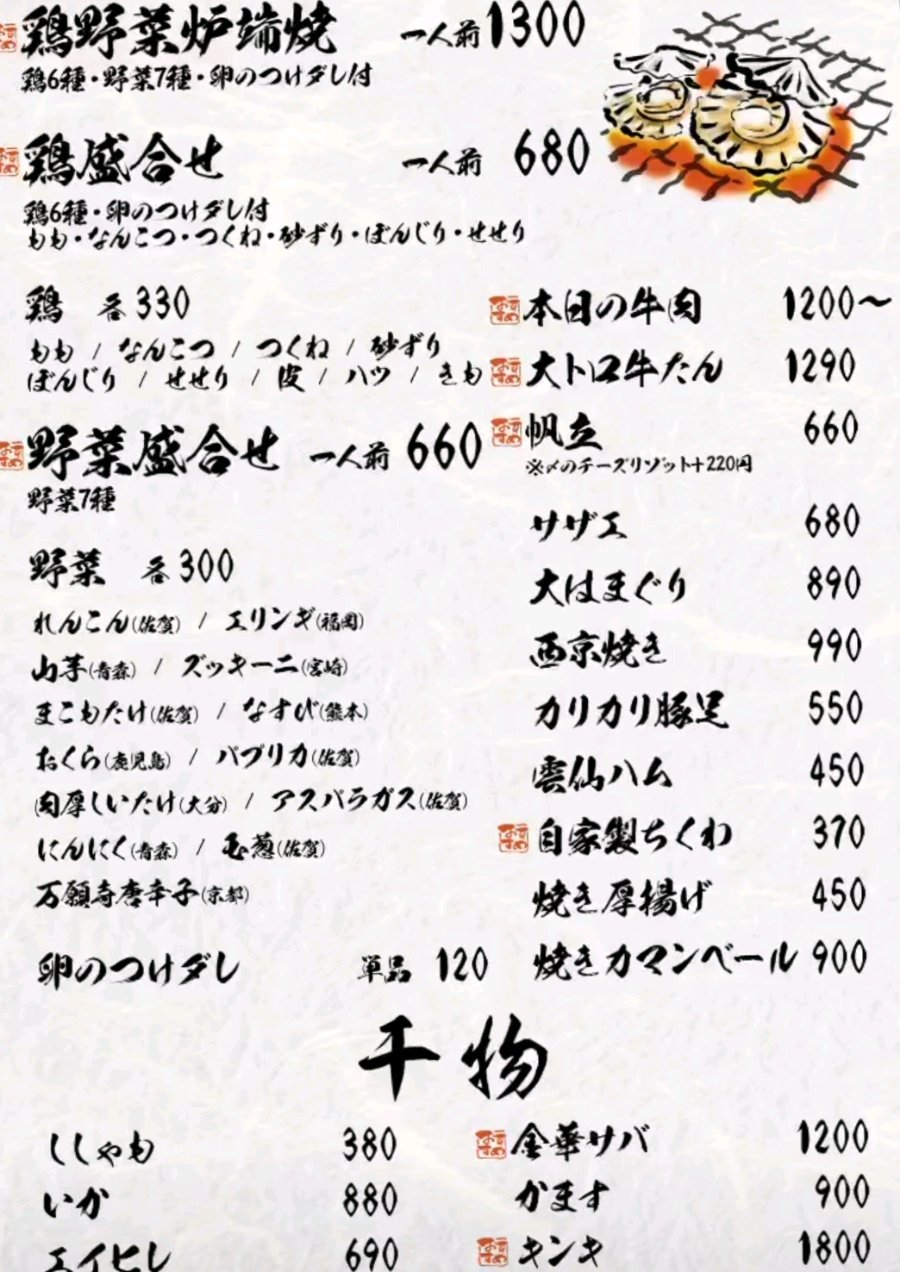 鶏野菜炉端焼 一人前 1300
鶏6種・野菜7種・卵のつけダレ付
鶏盛合せ 一人前 680
鶏6種・卵のつけダレ付
もも・なんこつ・つくね・砂ずり・ぼんじり・せせり
鶏 各330
もも / なんこつ / つくね / 砂ずり
ぼんじり / せせり / 皮 / ハツ / きも
野菜盛合せ 一人前 660
野菜7種
野菜 各300
れんこん(佐賀) / エリンギ(福岡)
山芋(青森) / ズッキーニ(宮崎)
まこもたけ(佐賀) / なすび(熊本)
おくら(鹿児島) / パプリカ(佐賀)
肉厚しいたけ(大分) / アスパラガス(佐賀)
にんにく(青森) / 毛葱(佐賀)
万願寺唐辛子(京都)
卵のつけダレ 単品 120
おすすめ 本日の牛肉 1200〜
おすすめ 大トロ牛たん 1290
おすすめ 帆立 660
※〆のチーズリゾット+220円
サザエ 680
大はまぐり 890
西京焼き 990
カリカリ豚足 550
雲仙ハム 450
おすすめ 自家製ちくわ 370
焼き厚揚げ 450
焼きカマンベール 900
干物
ししゃも 380
いか 880
エイヒレ 690
おすすめ 金華サバ 1200
かます 900
おすすめ キンキ 1800